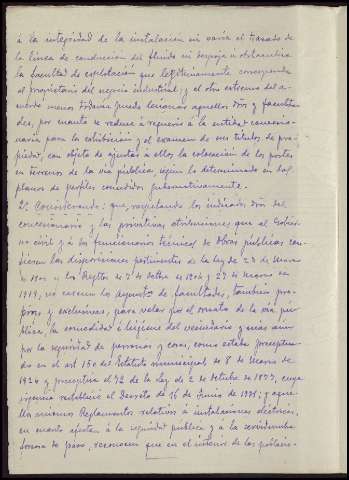 á la integridad de la instalación ni varía el trazado de
la línea de conducción del fluido ni despoja ú obstaculiza
la facultad de explotación que legítimamente corresponde
al propietario del negocio industrial; y el otro extremo del a-
cuerdo menos todavía puede lesionar aquellos dros y faculta-
des, por cuanto se reduce á requerir á la entidad concesio-
naria para la exhibición y el examen de sus títulos de pro-
piedad, con objeto de ajustar á ellos la colocación de los postes
en terrenos de la vía pública, según lo determinado en los
planos de perfiles concedidos gubernativamente.
2º Considerando: que, respetando los indicados dros del
concesionario y las privativas atribuciones que al Gobier-
no civil y á los funcionarios técnicos de Obras públicas con-
fieren las disposiciones pertinentes de la Ley de 23 de Marzo
de 1900 y los Regltos de 7 de Octbre de 1904 y 27 de Marzo de
1919, no carecen los Ayuntos de facultades, también pro-
pias y exclusivas, para velar por el ornato de la vía pú-
blica, la comodidad é higiene del vecindario y más aun
por la seguridad de personas y cosas, como estaba preceptua-
do en el art 150 del Estatuto municipal de 8 de Marzo de
1924 y preceptúa el 72 de la Ley de 2 de Octubre de 1877, cuya
vigencia restableció el Decreto de 16 de Junio de 1931; y aque-
llos mismos Reglamentos relativos á instalaciones eléctricas,
en cuanto afectan á la seguridad pública y á la servidumbre
forzosa de paso, reconocen que en el interior de las poblacio-